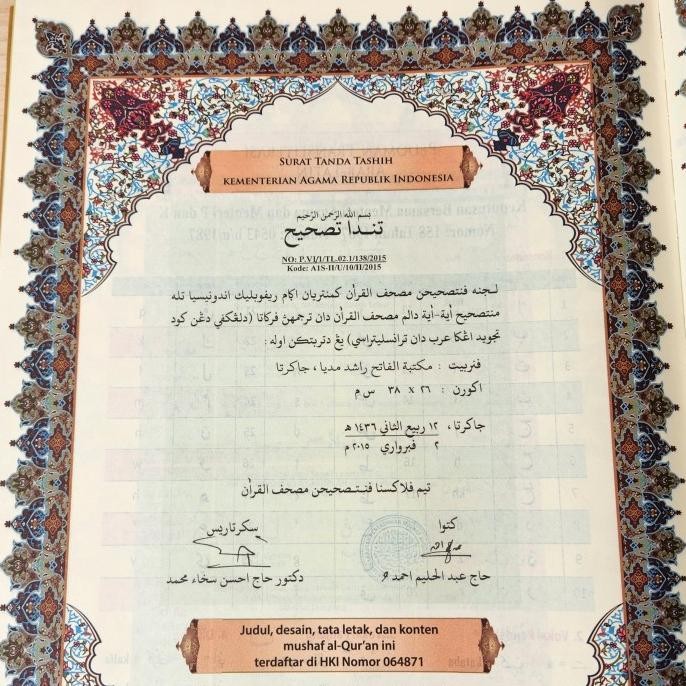 SURAT TANDA TASHIH
KEMENTERIAN AGAMA REPUBLIK INDONESIA
بسم الله الرحمن الرحيم
تندا تصحيح
NO: P.VI/1/TL.02.1/138/2015
Kode: A1S-II/U/10/II/2015
لجنه فنتصحيحن مصحف القرأن كمنتريان اڬام ريفوبليك اندونيسيا تله
منتصحيح أية-أية دالم مصحف القرأن دان ترجمهن فركاتا (دلڠكفي دڠن كود
تجويد اڠكا عرب دان ترانسليتراسي) يڠ دتربتكن اوله :
فنربيت : مكتبة الفاتح راشد مديا ، جاكرتا
اكورن : ٢٦ x ٣٨ س م
جاكرتا ، ١٢ ربيع الثاني ١٤٣٦ ه
٢ فبرواري ٢٠١٥ م
تيم فلاكسنا فنتصحيحن مصحف القرأن
كتوا سكرتاريس
حاج عبد الحليم احمد دكتور حاج احسن سخاء محمد
Judul, desain, tata letak, dan konten
mushaf al-Qur'an ini
terdaftar di HKI Nomor 064871